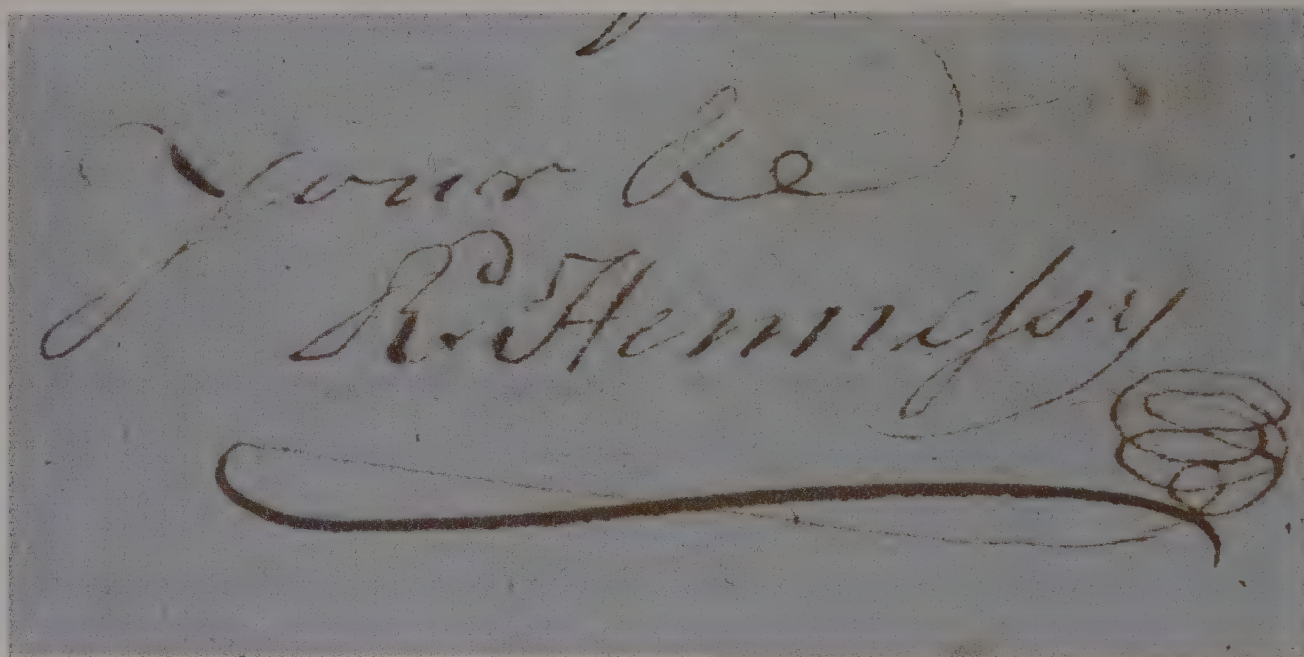 Your &c
R. Hennessy